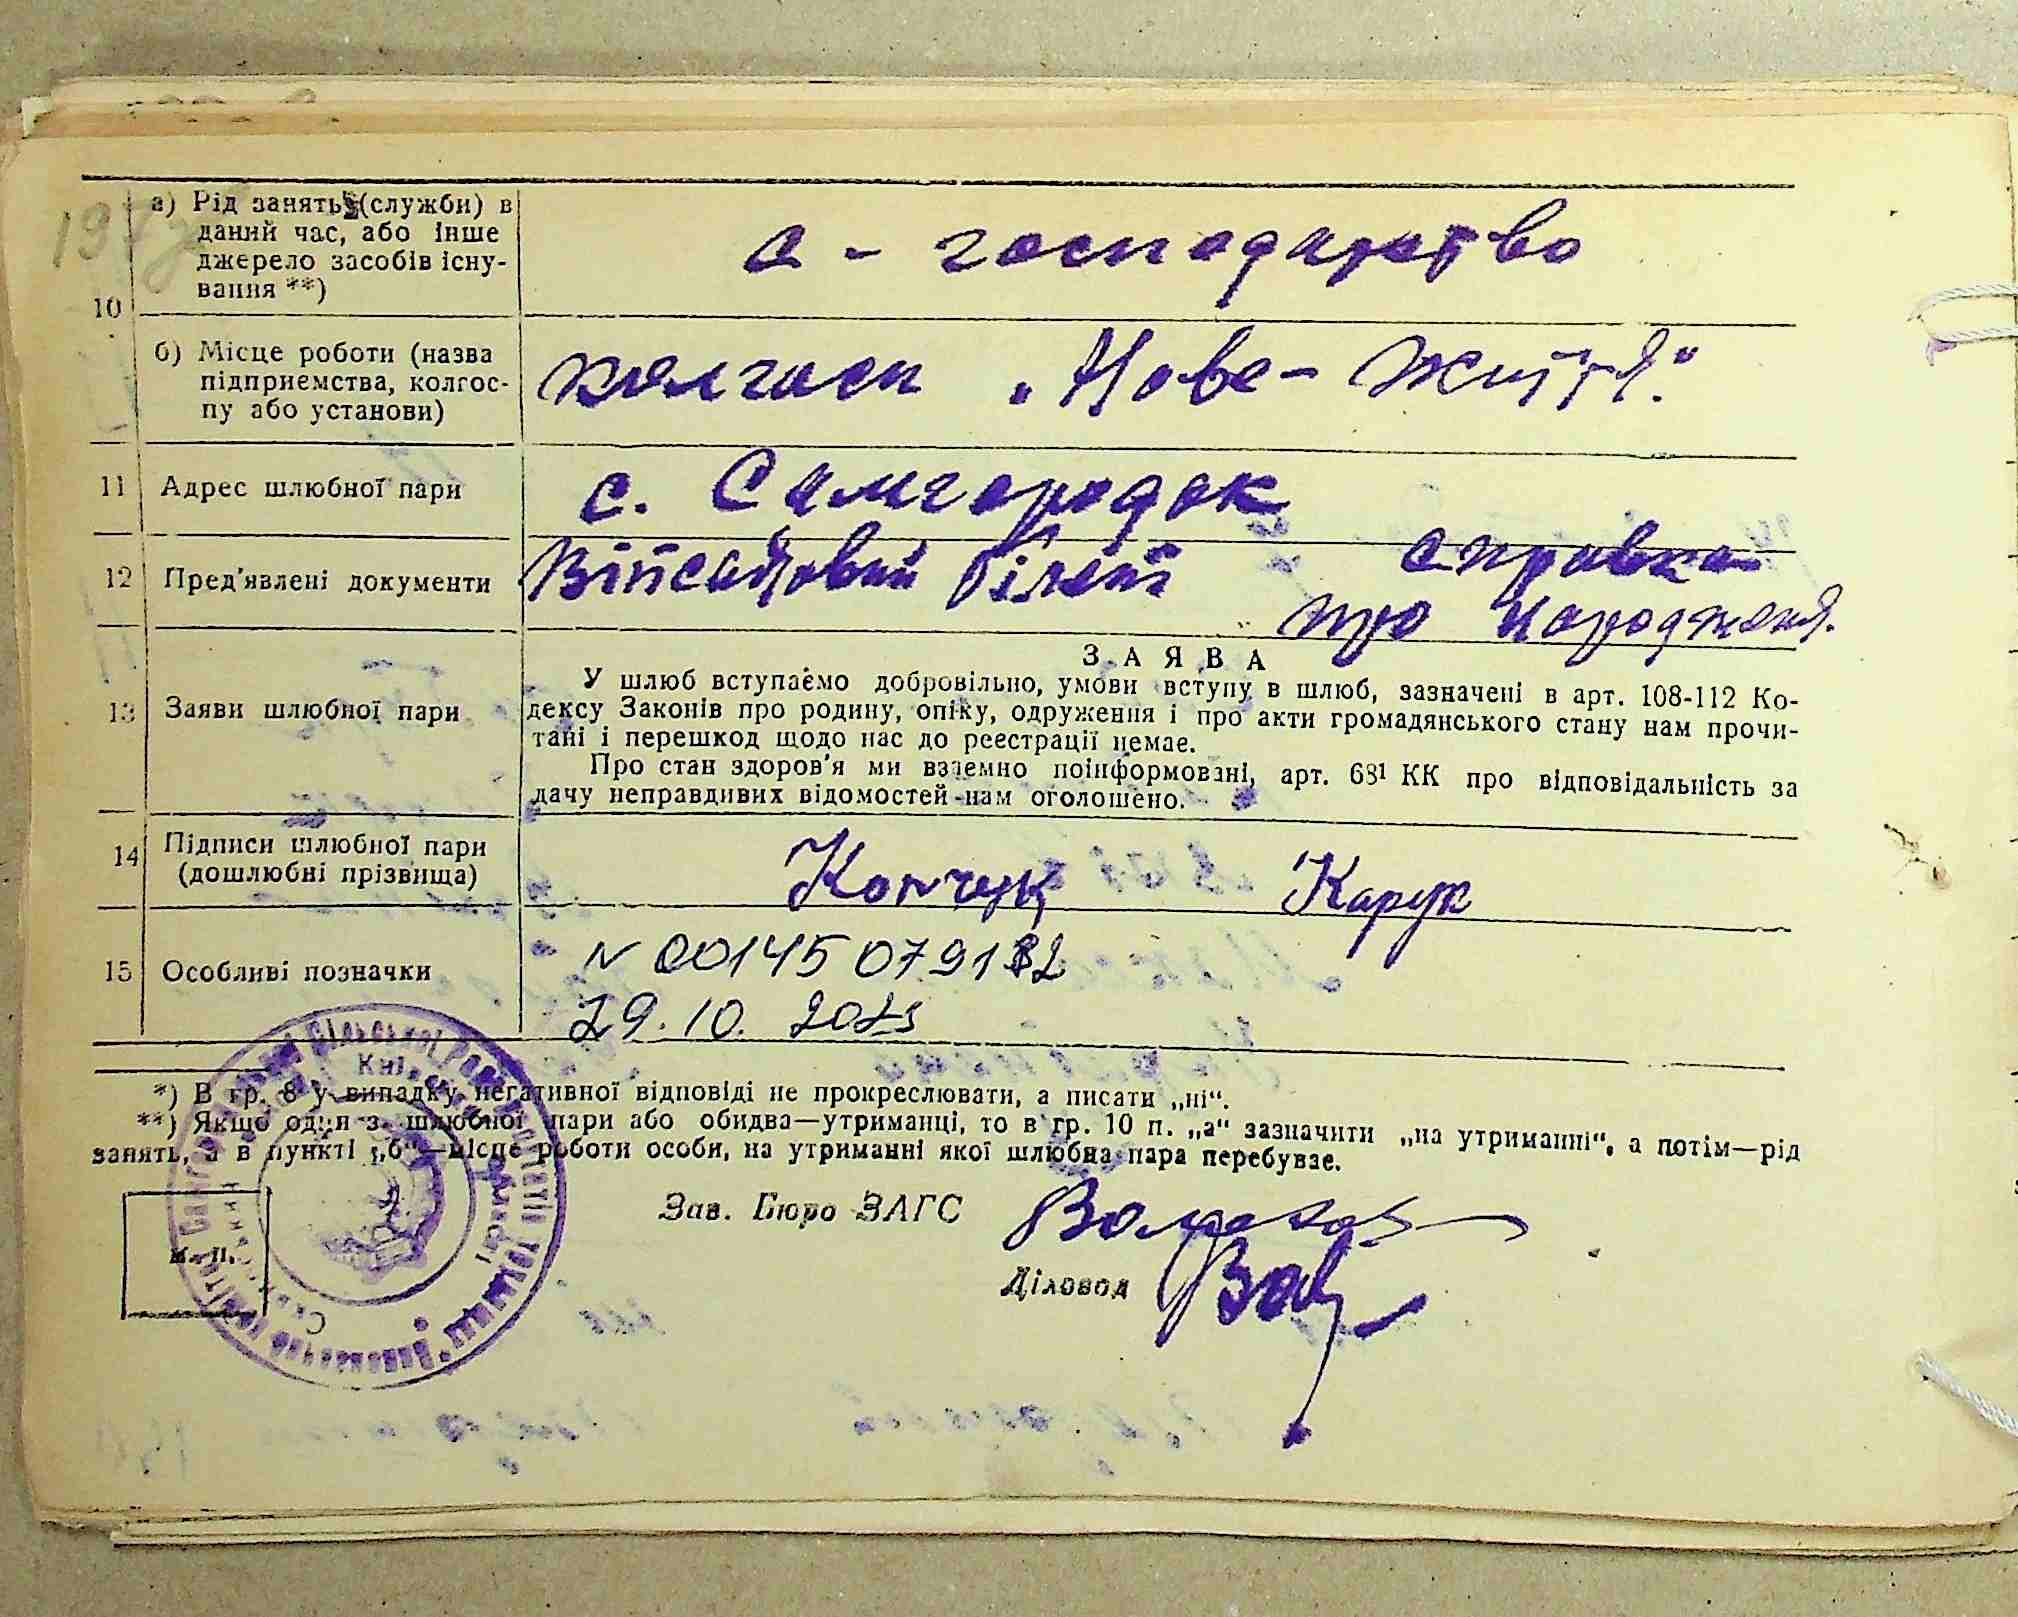 10
а) Рід занять (служби) в
даний час, або інше
джерело засобів існу-
вання **)
с - господарство
б) Місце роботи (назва
підприємства, колгос-
пу або установи)
колгосп „Нове - життя."
11 Адрес шлюбної пари
с. Самгородок
12 Пред'явлені документи
Військовий білет справка
про народженя.
13 Заяви шлюбної пари
ЗАЯВА
У шлюб вступаємо добровільно, умови вступу в шлюб, зазначені в арт. 108-112 Ко-
дексу Законів про родину, опіку, одруження і про акти громадянського стану нам прочи-
тані і перешкод щодо нас до реестрації немає.
Про стан здоров'я ми взаємно поінформовані, арт. 68¹ КК про відповідальність за
дачу неправдивих відомостей нам оголошено.
14 Підписи шлюбної пари
(дошлюбні прізвища)
Карук
15 Особливі позначки
N 00145079132
29.10. 2023
*) В гр. 8 у випадку негативної відповіді не прокреслювати, а писати „ні".
**) Якщо один з шлюбної пари або обидва—утриманці, то в гр. 10 п. „а" зазначити „на утриманні", а потім—рід
занять, а в пункті „б"—місце роботи особи, на утриманні якої шлюбна пара перебуває.
Зав. Бюро ЗАГС
Діловод
М. П.